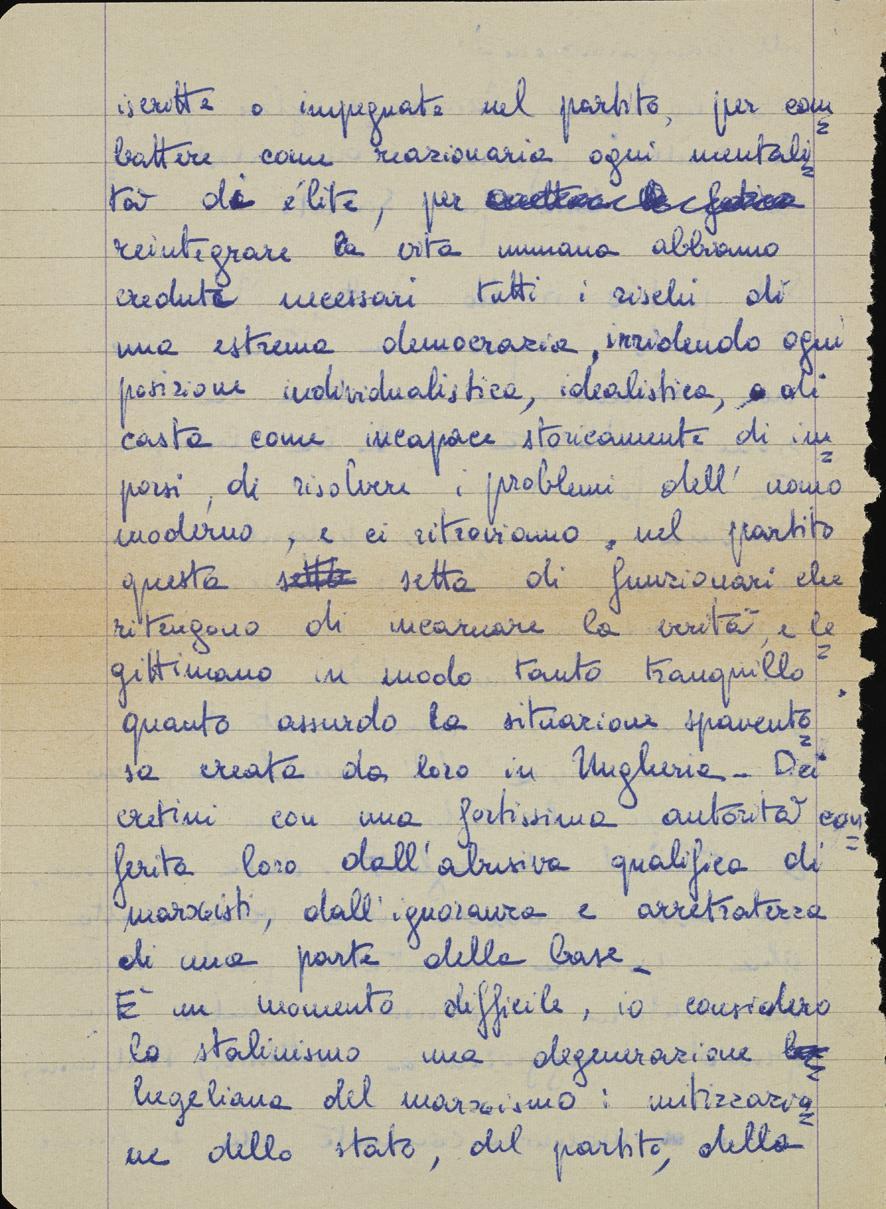 iscritte o impegnate nel partito, per com=
battere come reazionaria ogni mentali=
tà di élite, per
reintegrare la vita umana abbiamo
creduto necessari tutti i rischi di
una estrema democrazia, irridendo ogni
posizione individualistica, idealistica, o di
casta come incapace storicamente di im=
porsi, di risolvere i problemi dell'uomo
moderno, e ci ritroviamo, nel partito
questa setta setta di funzionari che
ritengono di incarnare la verità, e le=
gittimano in modo tanto tranquillo
quanto assurdo la situazione spavento=
sa creata da loro in Ungheria - Dei
cretini con una fortissima autorità con=
ferita loro dall'abusiva qualifica di
marxisti, dall'ignoranza e arretratezza
di una parte della base -
È un momento difficile, io considero
lo stalinismo una degenerazione
hegeliana del marxismo: mitizzazio=
ne dello stato, del partito, della